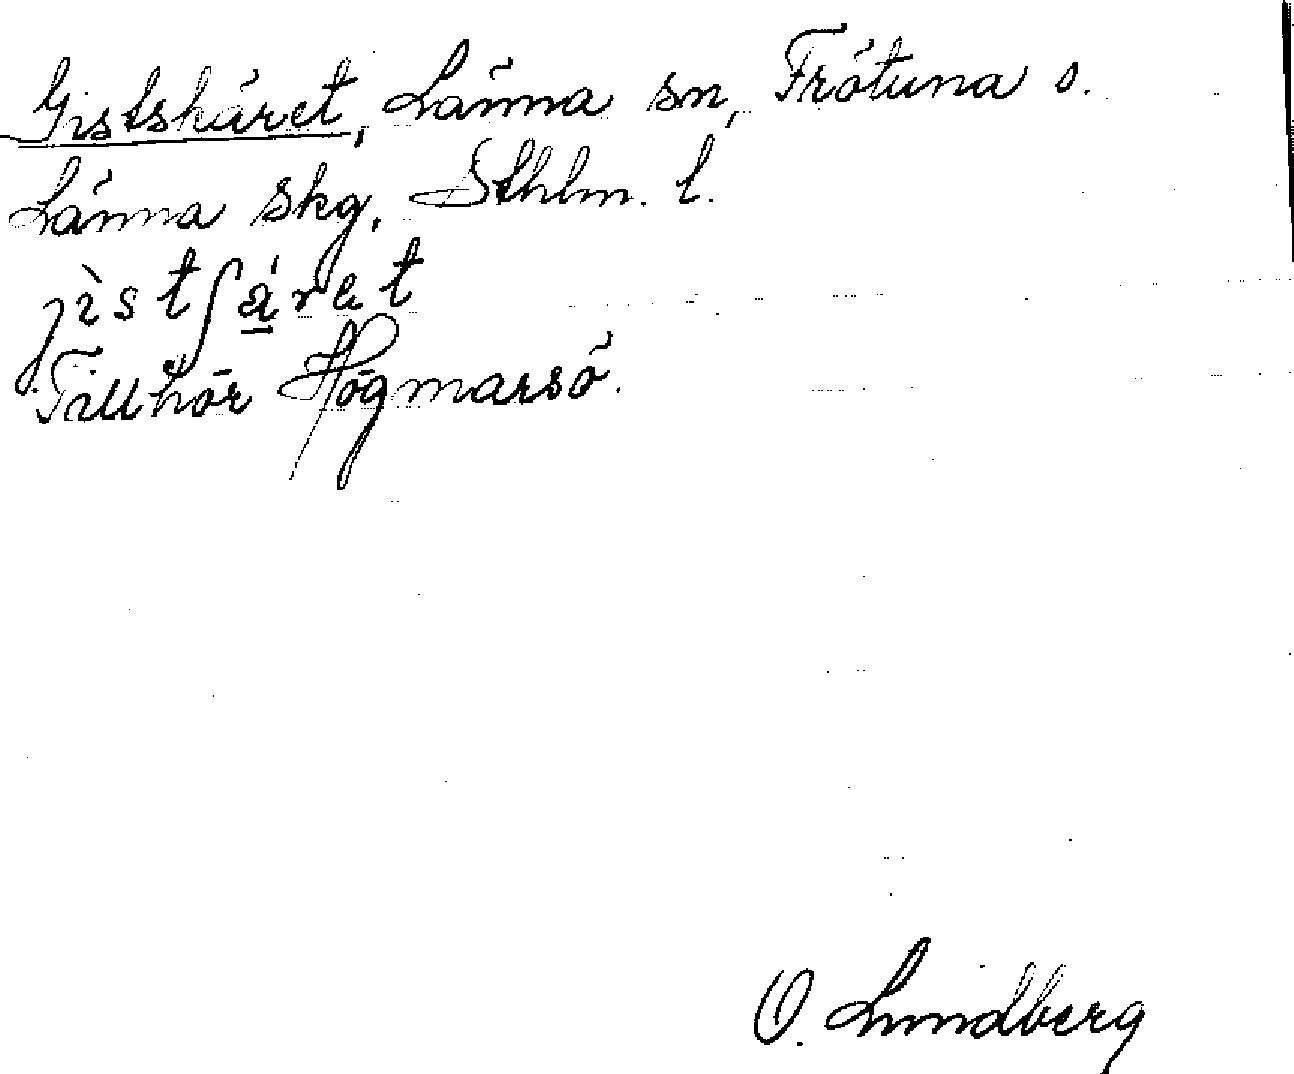 Gistskäret, Länna sn, Frötuna s.
Länna skg, Sthlm. l.
jìstʃä́ret
Tillhör Högmarsö.
O. Lundberg